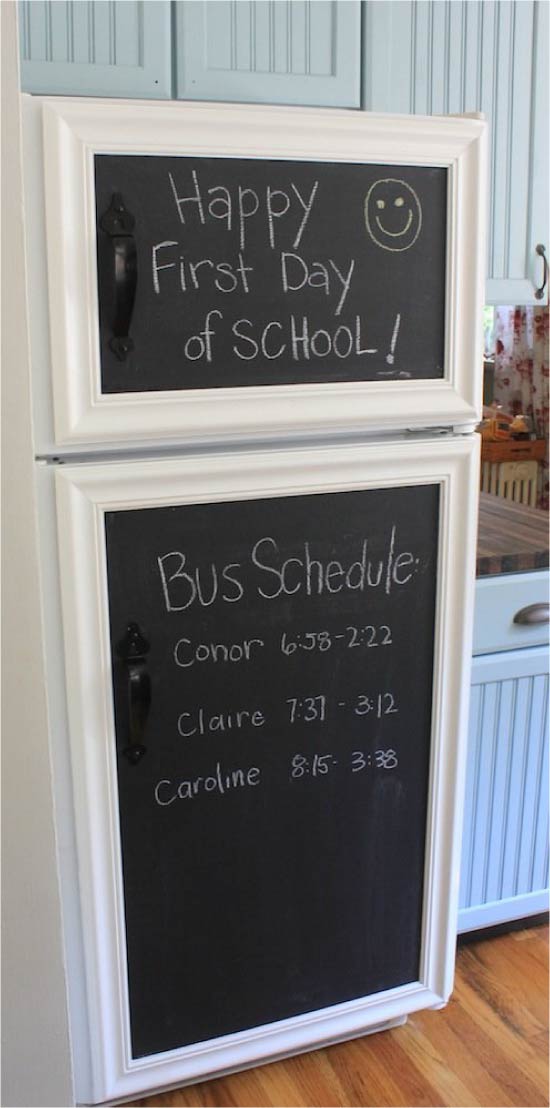 Happy
First Day
of SCHOOL!
Bus Schedule:
Conor 6:58-2:22
Claire 7:37 - 3:12
Caroline 8:15- 3:38